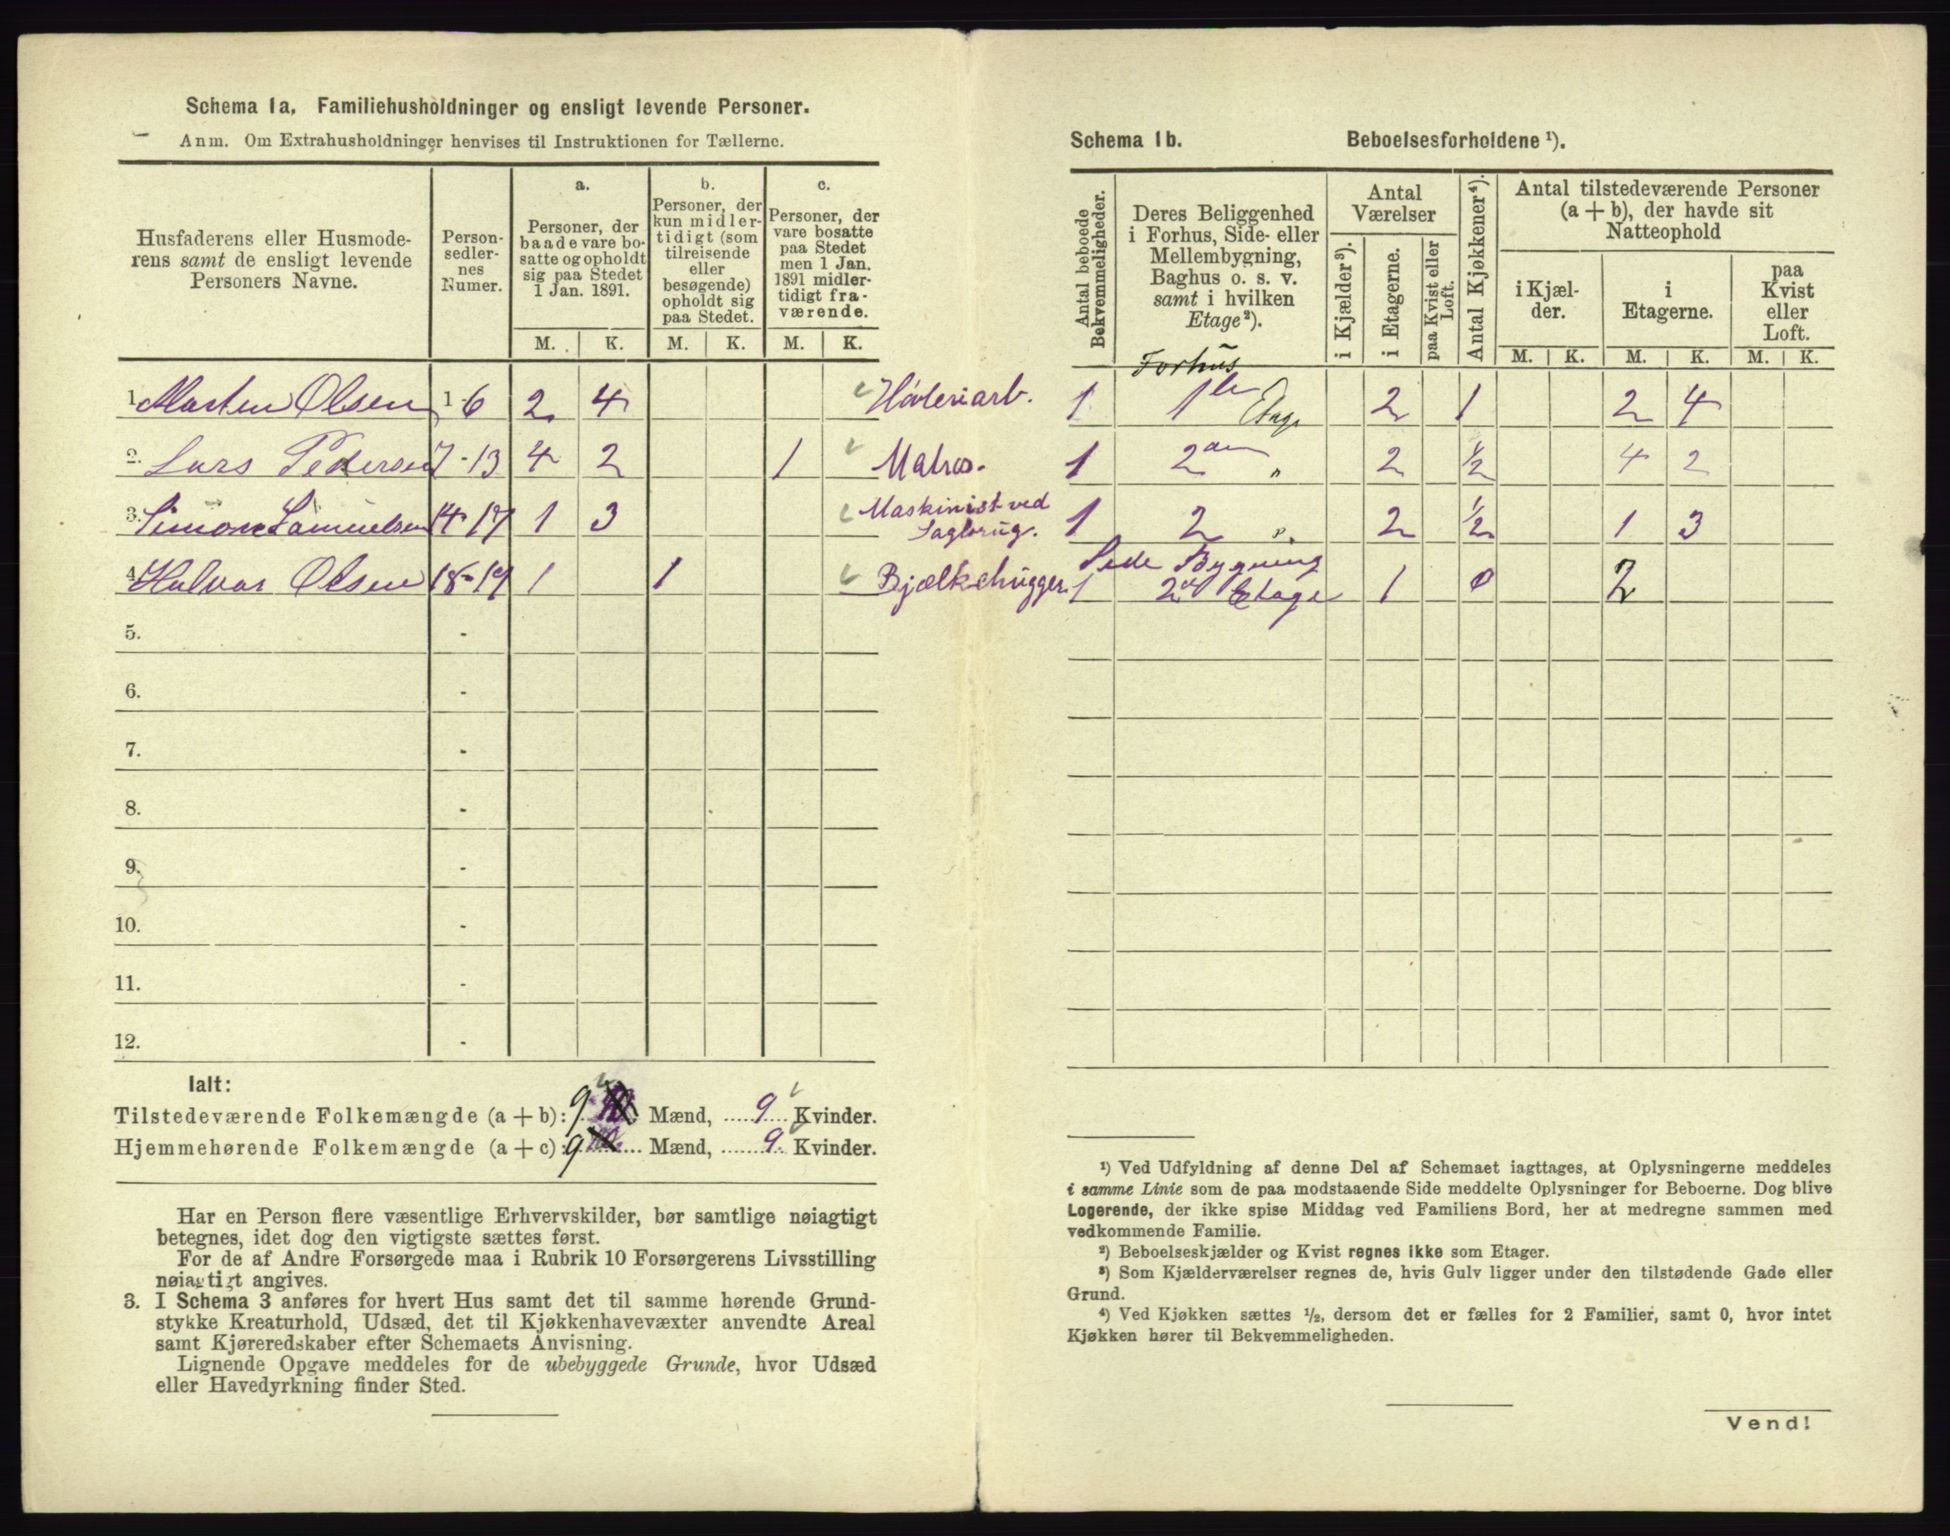 Schema 1a. Familiehusholdninger og ensligt levende Personer.
Anm. Om Extrahusholdninger henvises til Instruktionen for Tællerne.
Husfaderens eller Husmode-
rens samt de ensligt levende
Personers Navne.
Person-
sedler-
nes
Numer.
a.
Personer, der
baade vare bo-
satte og opholdt
sig paa Stedet
1 Jan. 1891.
b.
Personer, der
kun midler-
tidigt (som
tilreisende
eller
besøgende)
opholdt sig
paa Stedet.
c.
Personer, der
vare bosatte
paa Stedet
men 1 Jan.
1891 midler-
tidigt fra-
værende.
M. K. M. K. M. K.
1. Marten Olsen 1-6 2 4 Høvleriarb.
2. Lars Pedersen 7-13 4 2 1 Matros.
3. Simon Samuelsen 14-17 1 3 Maskinist ved
Sagbrug.
4. Halvor Olsen 18-19 1 1 Bjælkehugger
5. -
6. -
7. -
8. -
9. -
10. -
11. -
12. -
Ialt:
Tilstedeværende Folkemængde (a + b): 9 10 Mænd, 9 Kvinder.
Hjemmehørende Folkemængde (a + c): 9 10 Mænd, 9 Kvinder.
Har en Person flere væsentlige Erhvervskilder, bør samtlige nøiagtigt
betegnes, idet dog den vigtigste sættes først.
For de af Andre Forsørgede maa i Rubrik 10 Forsørgerens Livsstilling
nøiagtigt angives.
3. I Schema 3 anføres for hvert Hus samt det til samme hørende Grund-
stykke Kreaturhold, Udsæd, det til Kjøkkenhavevæxter anvendte Areal
samt Kjøreredskaber efter Schemaets Anvisning.
Lignende Opgave meddeles for de ubebyggede Grunde, hvor Udsæd
eller Havedyrkning finder Sted.
Schema 1b. Beboelsesforholdene ¹).
Antal beboede
Bekvemmeligheder.
Deres Beliggenhed
i Forhus, Side- eller
Mellembygning,
Baghus o. s. v.
samt i hvilken
Etage²).
Antal
Værelser
i Kjælder³).
i Etagerne.
paa Kvist eller
Loft.
Antal Kjøkkener⁴).
Antal tilstedeværende Personer
(a + b), der havde sit
Natteophold
i Kjæl-
der.
i
Etagerne.
paa
Kvist
eller
Loft.
M. K. M. K. M. K.
Forhus
1 1ste Etage 2 1 2 4
1 2den " 2 ½ 4 2
1 2 " 2 ½ 1 3
Side Bygning
1 2d Etage 1 0 2
¹) Ved Udfyldning af denne Del af Schemaet iagttages, at Oplysningerne meddeles
i samme Linie som de paa modstaaende Side meddelte Oplysninger for Beboerne. Dog blive
Logerende, der ikke spise Middag ved Familiens Bord, her at medregne sammen med
vedkommende Familie.
²) Beboelseskjælder og Kvist regnes ikke som Etager.
³) Som Kjælderværelser regnes de, hvis Gulv ligger under den tilstødende Gade eller
Grund.
⁴) Ved Kjøkken sættes ½, dersom det er fælles for 2 Familier, samt 0, hvor intet
Kjøkken hører til Bekvemmeligheden.
Vend!